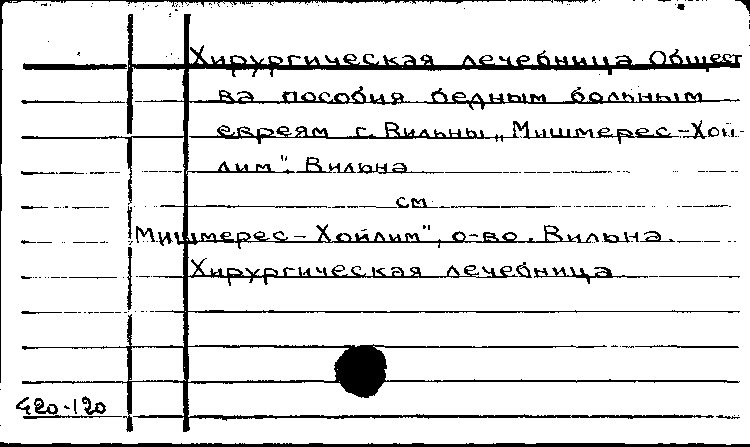 Хирургическая лечебница Общест
ва пособия бедным больным
евреям г. Вильны „Мишмерес-Хой-
лим". Вильна
см
Мишмерес-Хойлим", о-во. Вильна.
Хирургическая лечебница.
420-120